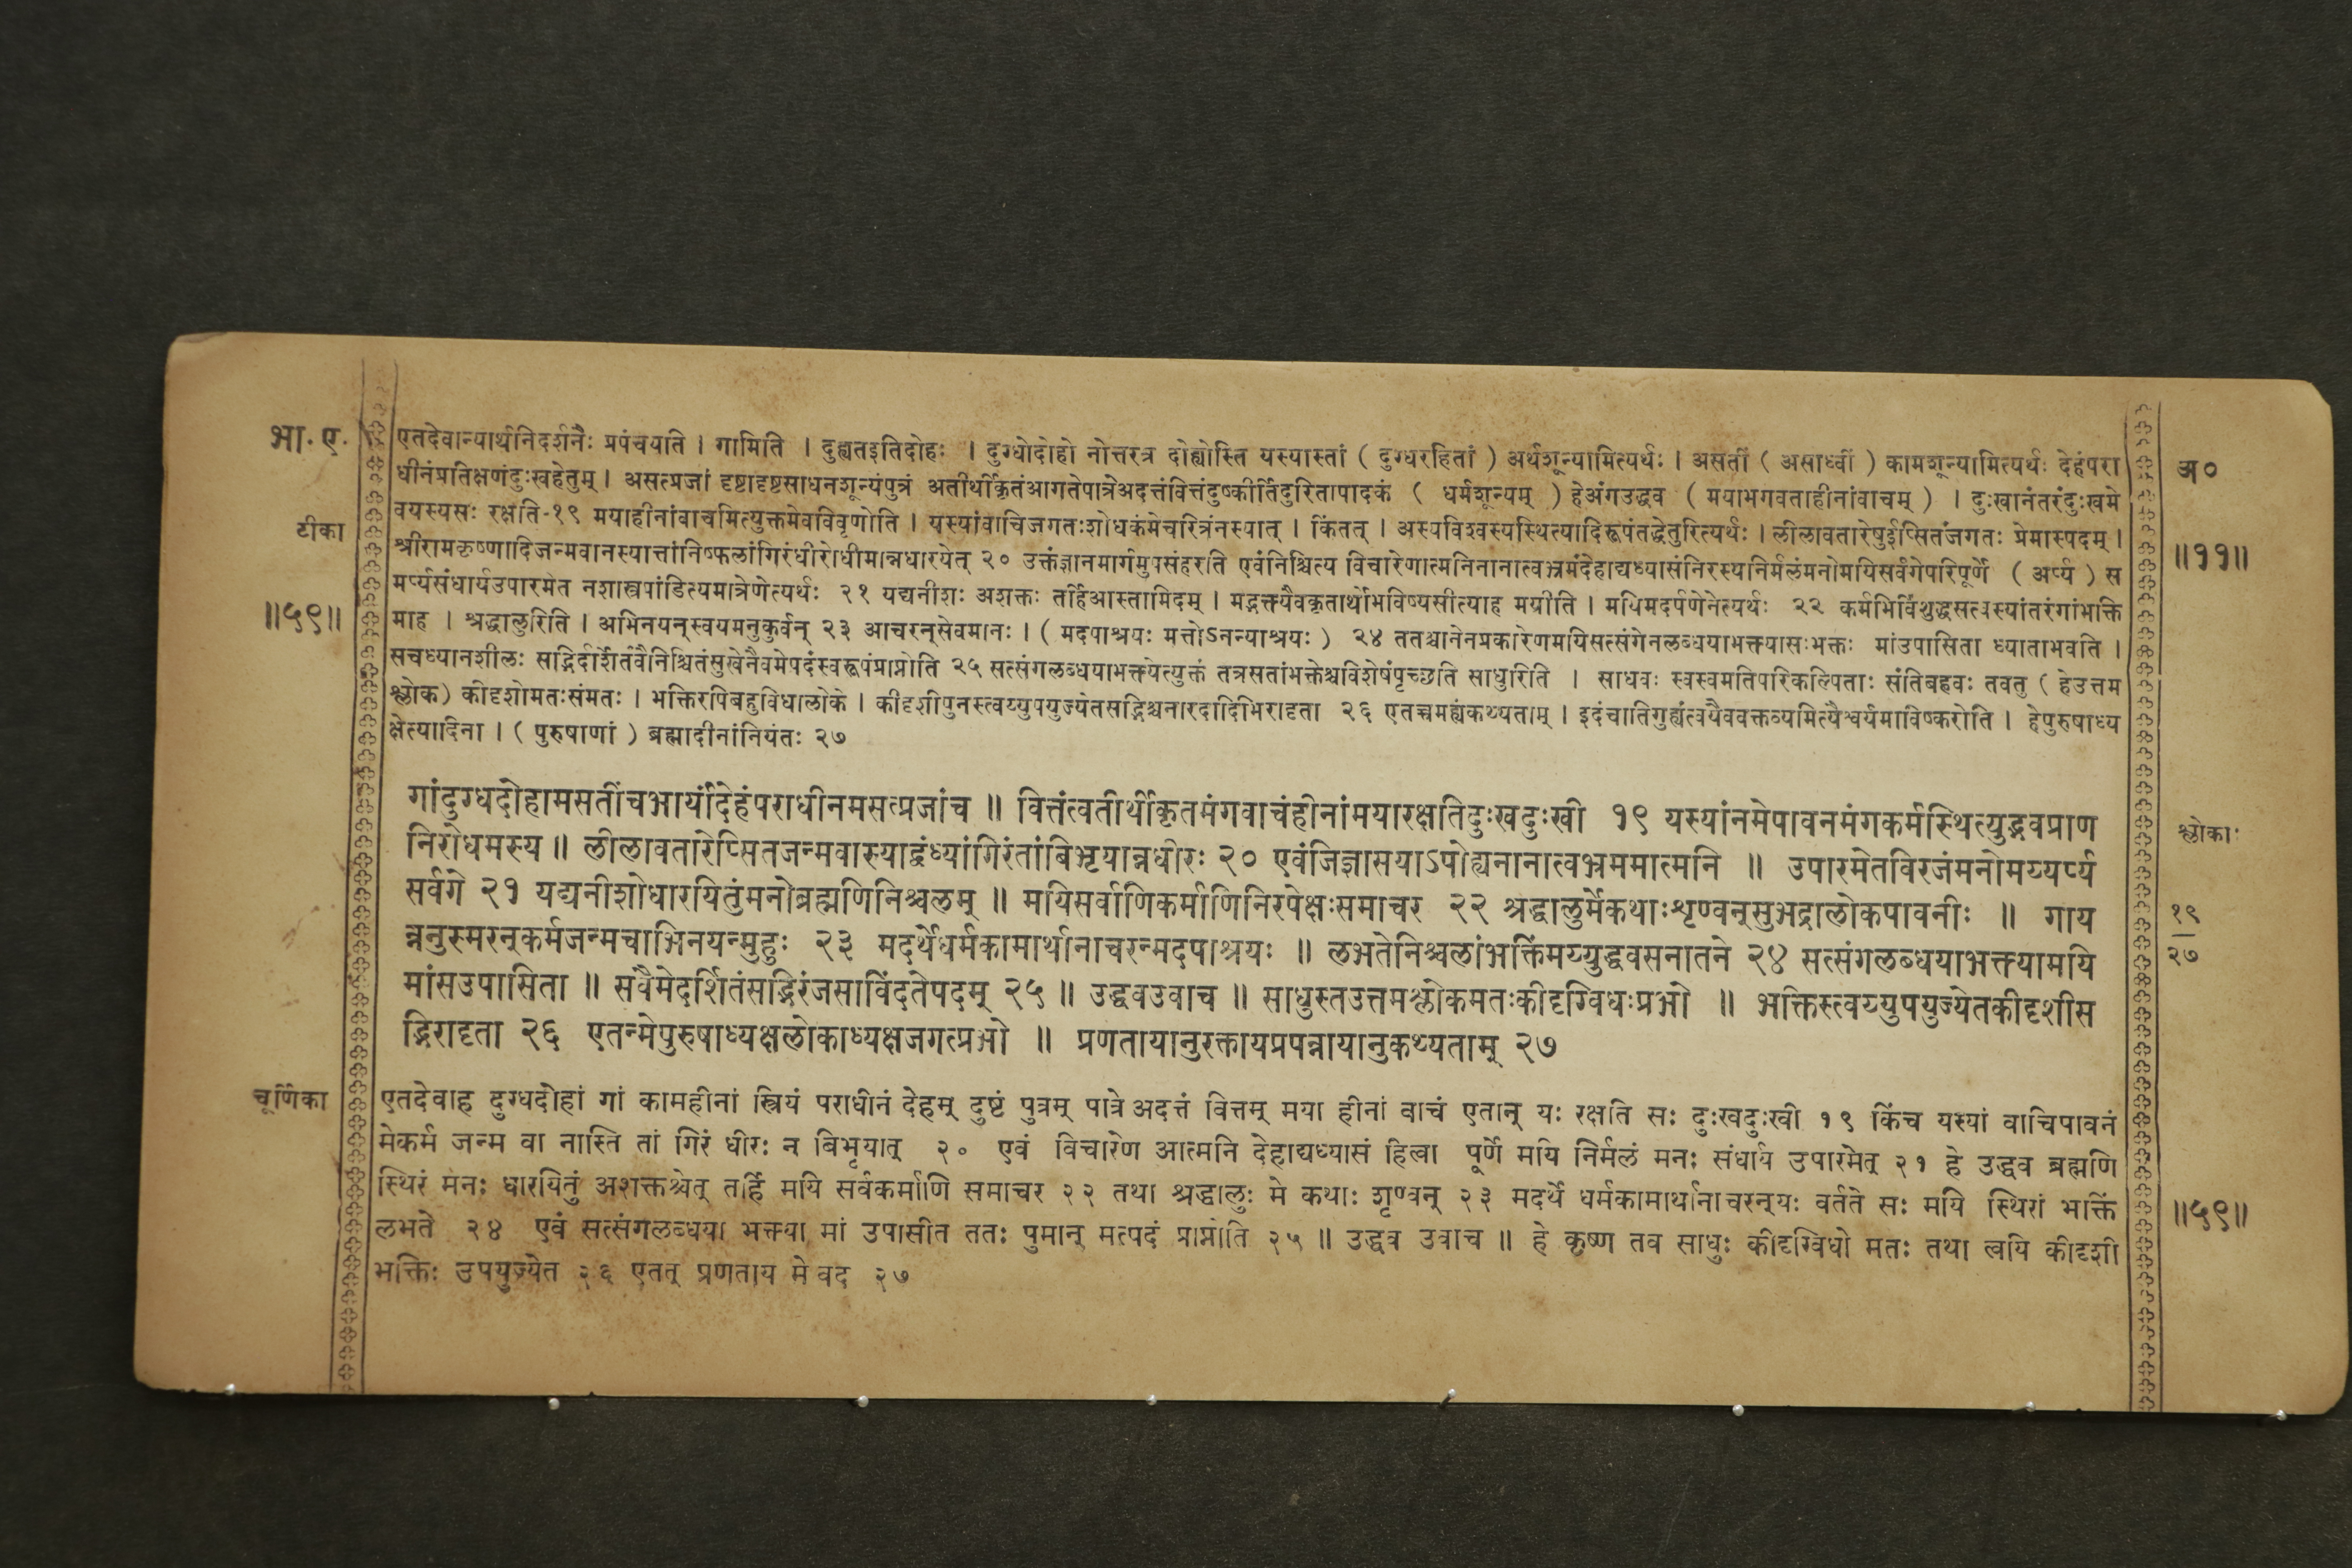 भा. ए.
एतदेवान्यार्थनिदर्शनैः प्रपंचयति । गामिति । दुह्यतइतिदोहः । दुग्धोदोहो नोत्तरत्र दोह्योस्ति यस्यास्तां ( दुग्धरहितां ) अर्थशून्यामित्यर्थः । असतीं ( असाध्वीं ) कामशून्यामित्यर्थः देहंपरा
अ०
धीनंप्रतिक्षणंदुःखहेतुम् । असत्प्रजां दृष्टादृष्टसाधनशून्यंपुत्रं अतीर्थीकृतंआगतेपात्रेअदत्तंवित्तंदुष्कीर्तिदुरितापादकं ( धर्मशून्यम् ) हेअंगउद्धव ( मयाभगवताहीनांवाचम् ) । दुःखानंतरंदुःखमे
टीका
वयस्यसः रक्षति-१९ मयाहीनांवाचमित्युक्तमेवविवृणोति । यस्यांवाचिजगतःशोधकंमेचरित्रंनस्यात् । किंतत् । अस्यविश्वस्यस्थित्यादिरूपंतद्धेतुरित्यर्थः । लीलावतारेषुईप्सितंजगतः प्रेमास्पदम् ।
॥११॥
श्रीरामकृष्णादिजन्मवानस्यात्तांनिष्फलांगिरंधीरोधीमान्नधारयेत् २० उक्तंज्ञानमार्गमुपसंहरति एवंनिश्चित्य विचारेणात्मनिनानात्वभ्रमंदेहाद्यध्यासंनिरस्यनिर्मलंमनोमयिसर्वगेपरिपूर्णे ( अर्प्य ) स
मर्प्यसंधार्यउपारमेत नशास्त्रपांडित्यमात्रेणेत्यर्थः २१ यद्यनीशः अशक्तः तर्हिआस्तामिदम् । मद्भक्त्यैवकृतार्थोभविष्यसीत्याह मयीति । मयिमदर्पणेनेत्यर्थः २२ कर्मभिर्विशुद्धसत्वस्यांतरंगांभक्ति
॥५९॥
माह । श्रद्धालुरिति । अभिनयन्स्वयमनुकुर्वन् २३ आचरन्सेवमानः । ( मदपाश्रयः मत्तोऽनन्याश्रयः ) २४ ततश्चानेनप्रकारेणमयिसत्संगेनलब्धयाभक्त्यासःभक्तः मांउपासिता ध्याताभवति ।
सचध्यानशीलः सद्भिर्दर्शितंवैनिश्चितंसुखेनैवमेपदंस्वरूपंप्राप्नोति २५ सत्संगलब्धयाभक्त्येत्युक्तं तत्रसतांभक्तेश्चविशेषंपृच्छति साधुरिति । साधवः स्वस्वमतिपरिकल्पिताः संतिबहवः तवतु ( हेउत्तम
श्लोक) कीदृशोमतःसंमतः । भक्तिरपिबहुविधालोके । कीदृशीपुनस्त्वय्युपयुज्येतसद्भिश्चनारदादिभिरादृता २६ एतन्नमह्यंकथ्यताम् । इदंचातिगुह्यंत्वयैववक्तव्यमित्यैश्वर्यमाविष्करोति । हेपुरुषाध्य
क्षेत्यादिना । ( पुरुषाणां ) ब्रह्मादीनांनियंतः २७
गांदुग्धदोहामसतींचभार्यांदेहंपराधीनमसत्प्रजांच ॥ वित्तंत्वतीर्थीकृतमंगवाचंहीनांमयारक्षतिदुःखदुःखी १९ यस्यांनमेपावनमंगकर्मस्थित्युद्भवप्राण
श्लोकाः
निरोधमस्य ॥ लीलावतारेप्सितजन्मवास्याद्वंध्यांगिरंतांबिभृयान्नधीरः २० एवंजिज्ञासयाऽपोह्यनानात्वभ्रममात्मनि ॥ उपारमेतविरजंमनोमय्यर्प्य
सर्वगे २१ यद्यनीशोधारयितुंमनोब्रह्मणिनिश्चलम् ॥ मयिसर्वाणिकर्माणिनिरपेक्षःसमाचर २२ श्रद्धालुर्मेकथाःशृण्वन्सुभद्रालोकपावनीः ॥ गाय
१९
न्ननुस्मरन्कर्मजन्मचाभिनयन्मुहुः २३ मदर्थेधर्मकामार्थानाचरन्मदपाश्रयः ॥ लभतेनिश्चलांभक्तिंमय्युद्धवसनातने २४ सत्संगलब्धयाभक्त्यामयि
२७
मांसउपासिता ॥ सवैमेदर्शितंसद्भिरंजसाविंदतेपदम् २५ ॥ उद्धवउवाच ॥ साधुस्तउत्तमश्लोकमतःकीदृग्विधःप्रभो ॥ भक्तिस्त्वय्युपयुज्येतकीदृशीस
द्भिरादृता २६ एतन्मेपुरुषाध्यक्षलोकाध्यक्षजगत्प्रभो ॥ प्रणतायानुरक्तायप्रपन्नायानुकथ्यताम् २७
चूर्णिका
एतदेवाह दुग्धदोहां गां कामहीनां स्त्रियं पराधीनं देहम् दुष्टं पुत्रम् पात्रे अदत्तं वित्तम् मया हीनां वाचं एतान् यः रक्षति सः दुःखदुःखी १९ किंच यस्यां वाचिपावनं
मेकर्म जन्म वा नास्ति तां गिरं धीरः न बिभृयात् २० एवं विचारेण आत्मनि देहाद्यध्यासं हित्वा पूर्णे मयि निर्मलं मनः संधार्य उपारमेत् २१ हे उद्धव ब्रह्मणि
स्थिरं मनः धारयितुं अशक्तश्चेत् तर्हि मयि सर्वकर्माणि समाचर २२ तथा श्रद्धालुः मे कथाः शृण्वन् २३ मदर्थे धर्मकामार्थानाचरन्यः वर्तते सः मयि स्थिरां भक्तिं
॥५९॥
लभते २४ एवं सत्संगलब्धया भक्त्या मां उपासीत ततः पुमान् मत्पदं प्राप्नोति २५ ॥ उद्धव उवाच ॥ हे कृष्ण तव साधुः कीदृग्विधो मतः तथा त्वयि कीदृशी
भक्तिः उपयुज्येत २६ एतत् प्रणताय मे वद २७